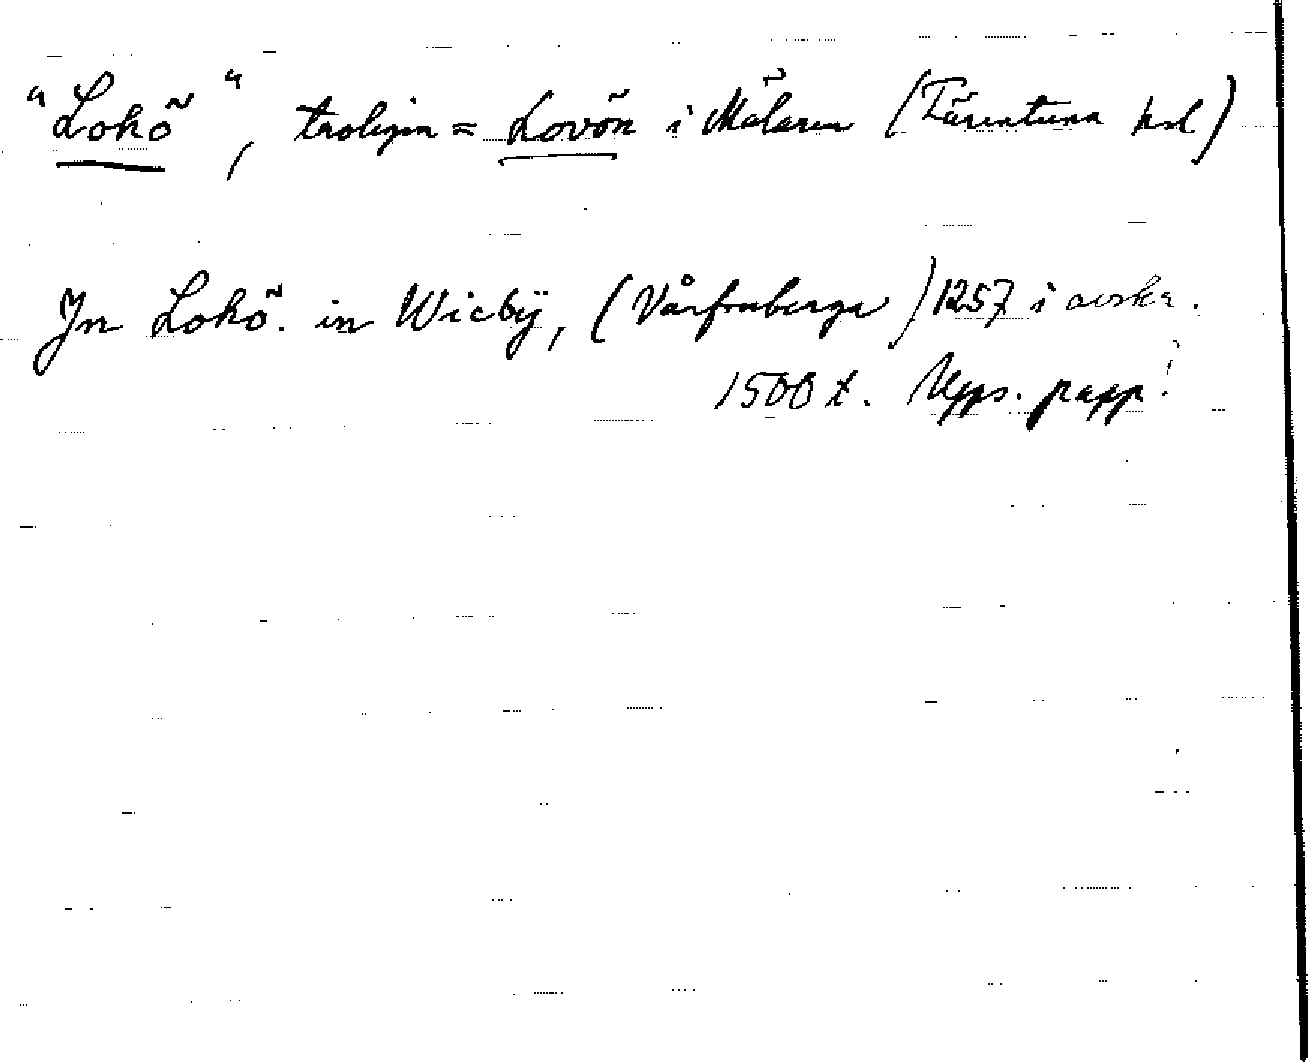 "Lokö", troligen = Lovön i Mälaren (Färentuna hsd)
Jn Lokö. in Wicbÿ, (Vårfruberga) 1257 i avskr.
1500 t. Upps. papp!